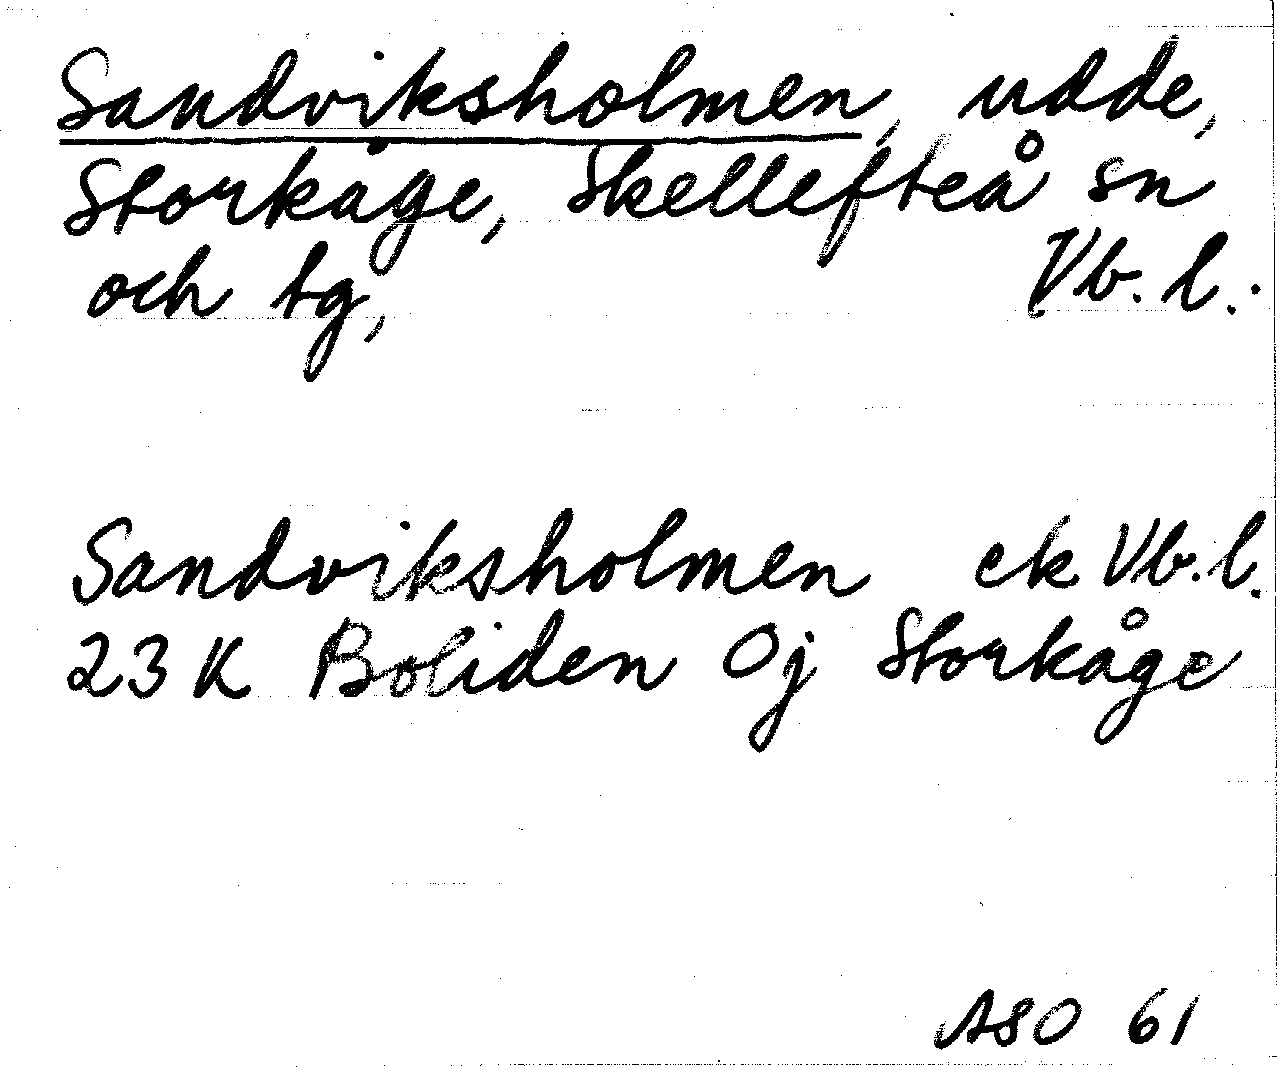 Sandviksholmen, udde,
Storkåge, Skellefteå sn
och tg, Vb. l.
Sandviksholmen ek Vb. l.
23 K Boliden Oj Storkåge
ASO 61